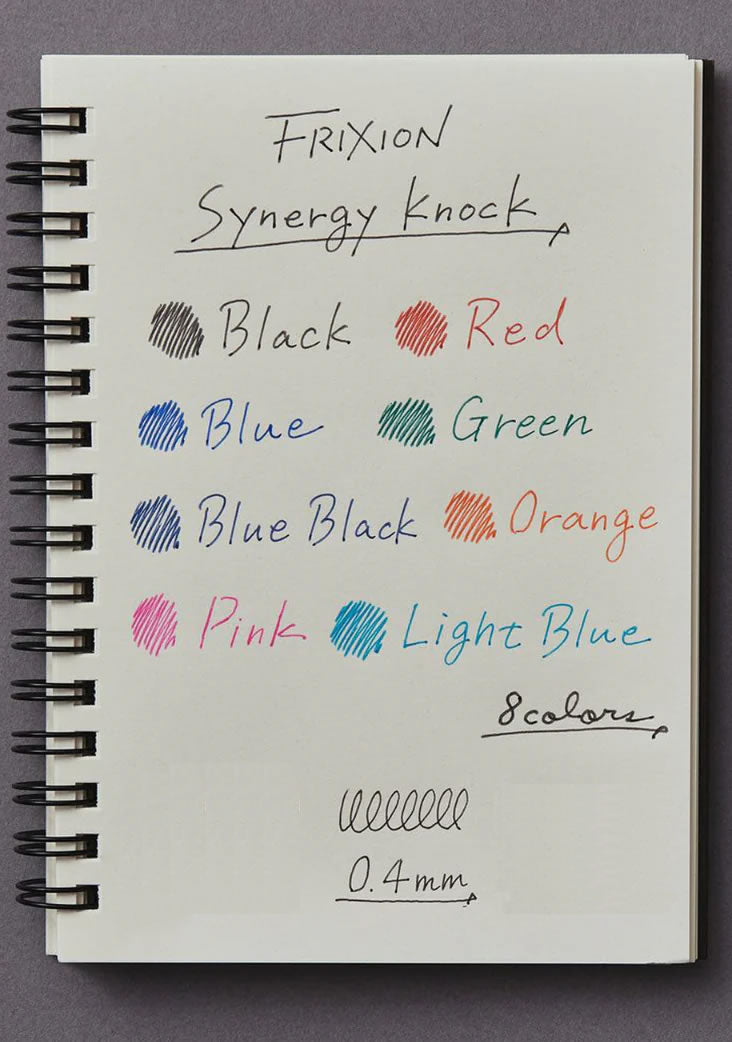 FRIXION
Synergy knock
Black Red
Blue Green
Blue Black Orange
Pink Light Blue
8colors
0.4mm